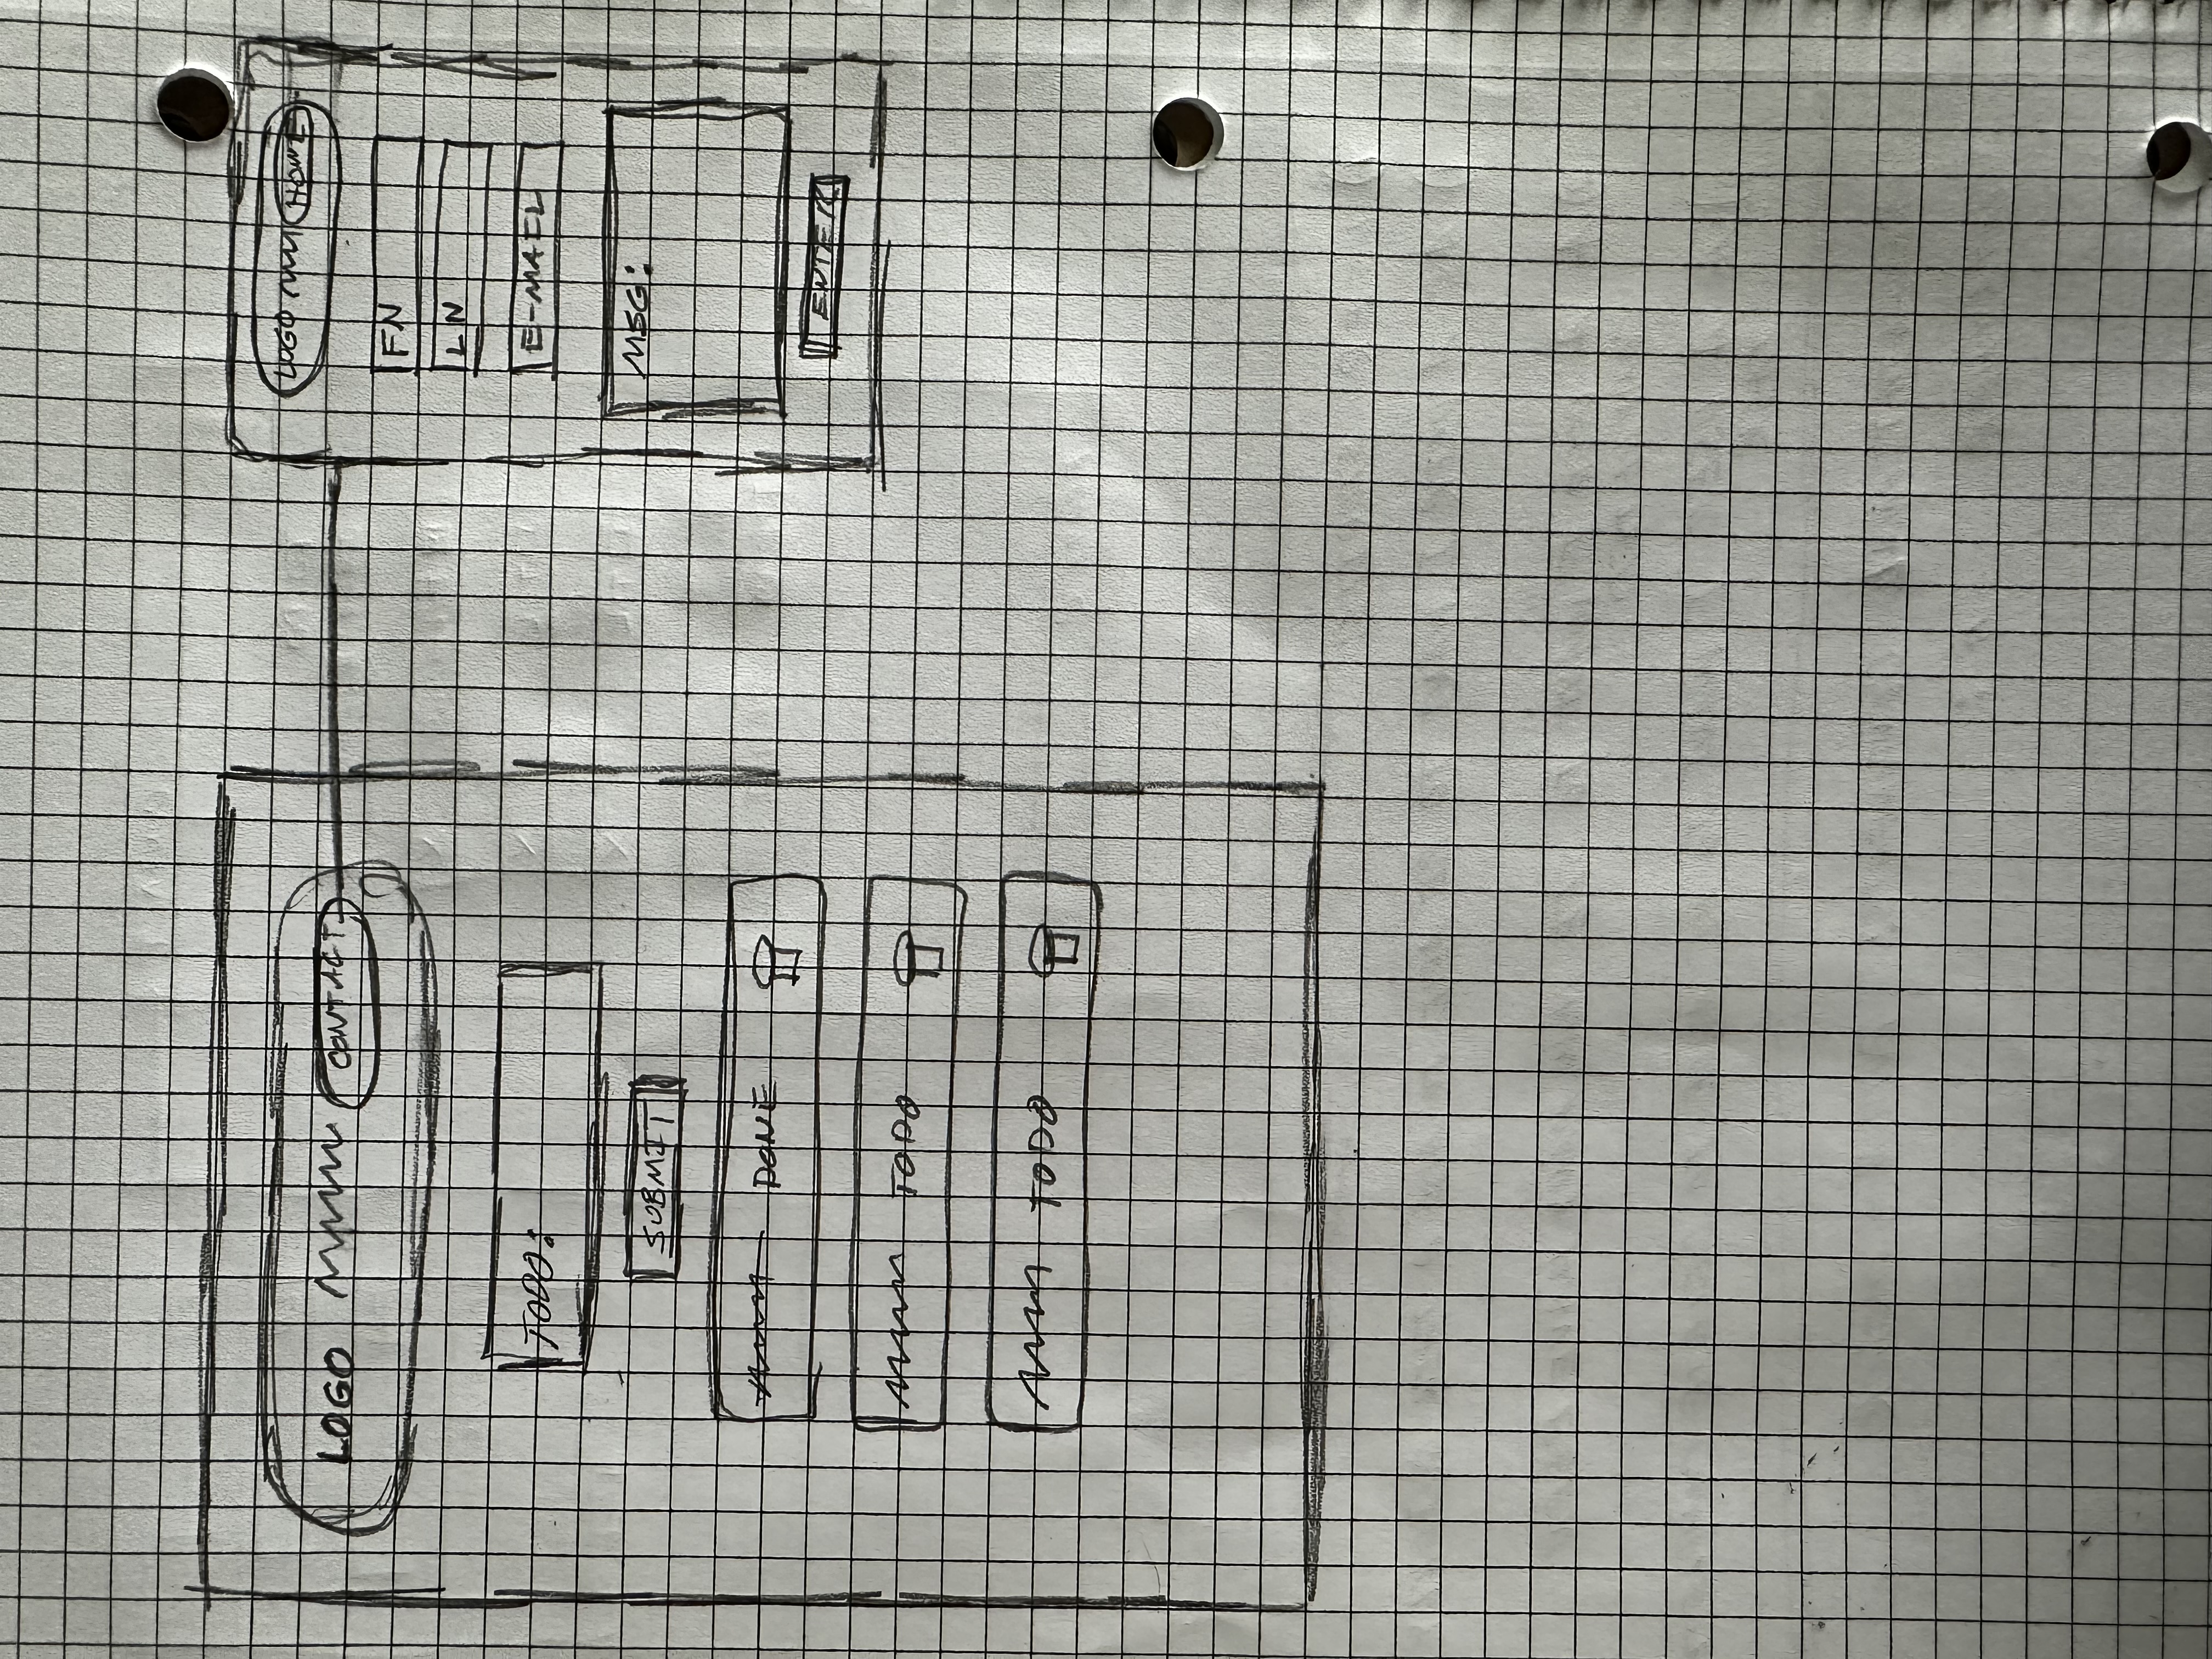 LOGO CONTACT
TODO:
SUBMIT
DONE
TODO
TODO
LOGO HOME
FN
LN
E-MAIL
MSG:
ENTER